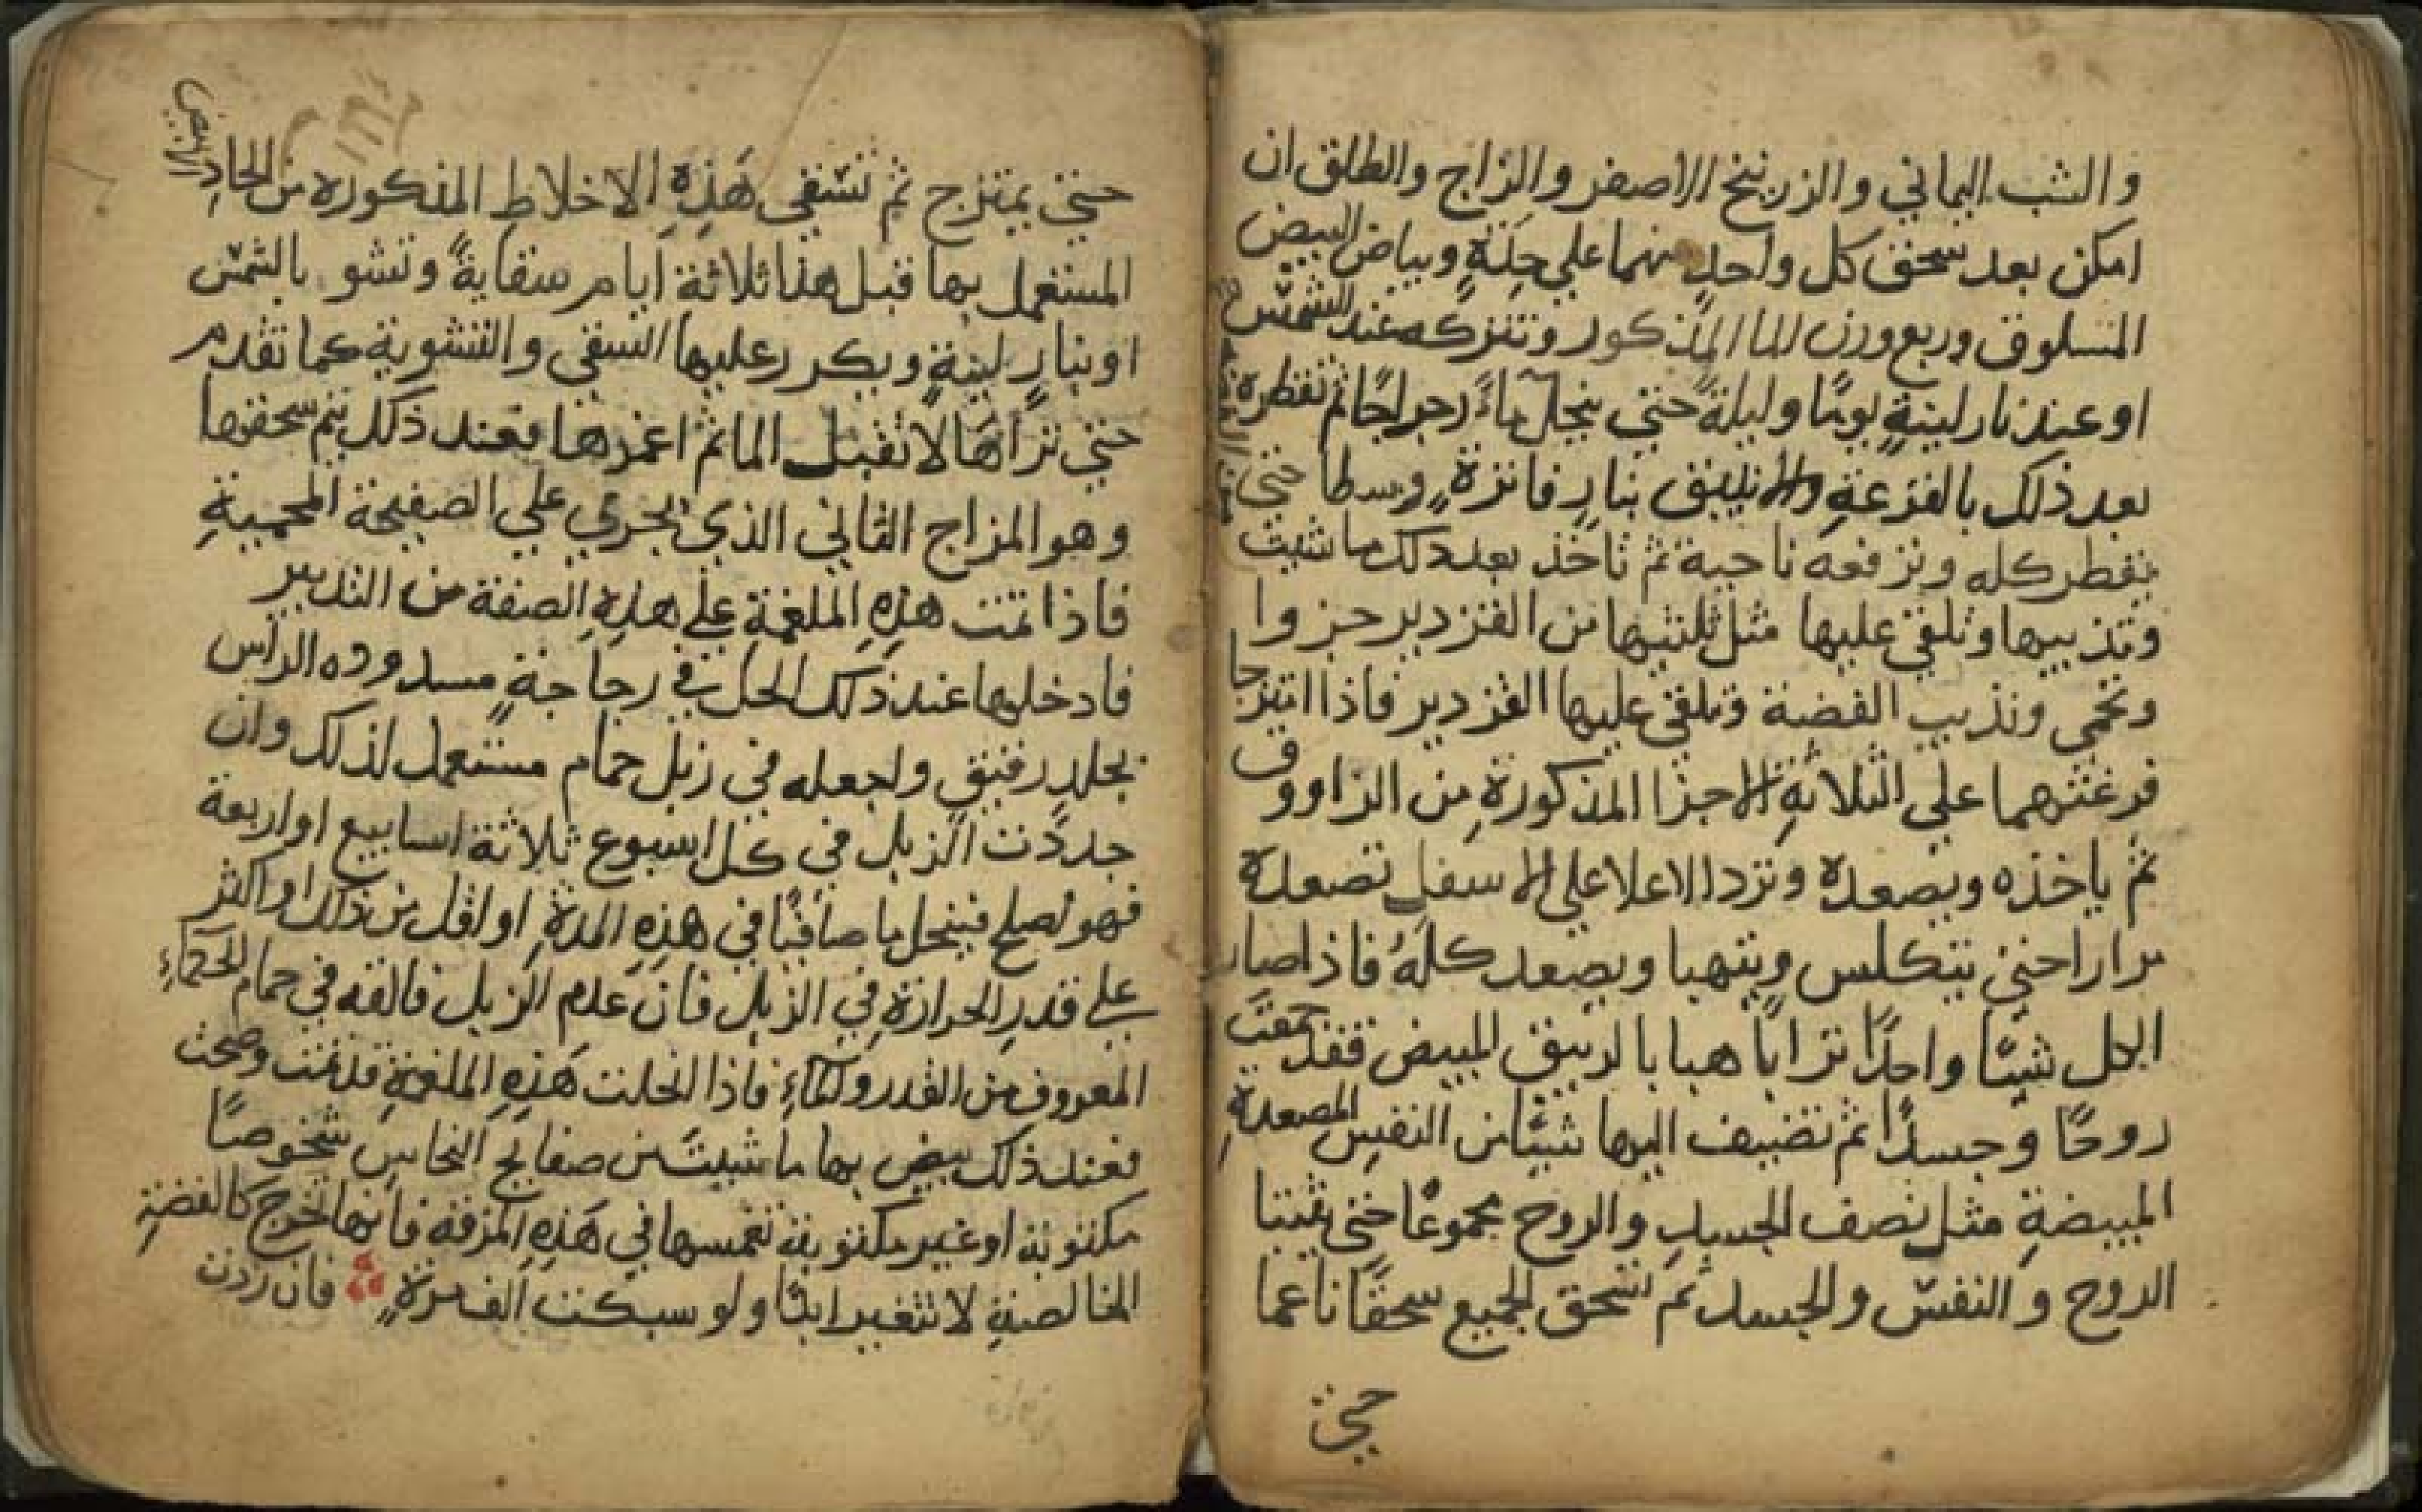 والشب اليماني والزرنيخ الاصفر والزاج والطلق ان
امكن بعد سحق كل واحد منهما علي حدةٍ وبياض البيض
المسلوق وربع وزن الما المذكور وتتركه عند الشمس
او عند نار لينةٍ يومًا وليلةً حتي ينحل ماءً رجراجًا ثم تقطره
بعد ذلك بالقرعةِ والانبيق بنارٍ فاترةٍ وسطا حتي
يقطر كله وترفعه ناحية ثم تاخذ بعد ذلك ما شيت
وتذيبها وتلقي عليها مثل ثلثيها من القزدير جزوا
وتحمي وتذيب الفضة وتلقي عليها القزدير فاذا امتزجا
فرغتهما علي الثلاثةِ الاجزا المذكورةِ من الزاووق
ثم ياخذه ويصعده وترد الاعلا علي الاسفل تصعده
مرارا حتي يتكلس ويتهبا ويصعد كلهُ فاذا صار
الكل شيئًا واحدًا ترابًا هبا بالزيبق المبيض فقد جمعتَ
روحًا وجسدًا ثم تضيف اليها شيئًا من النفسِ المصعدةِ
المبيضةِ مثل نصف الجسدِ والروح مجموعًا حتي يثبتا
الروح والنفس والجسد ثم تسحق الجميع سحقًا ناعما
حتي
حتي يمتزج ثم تسقي هَذِهِ الاخلاطِ المذكوره من الحادِ الابيض
المستعمل بها قبل هذا ثلاثة ايام سقايةً وتشوي بالشمس
او بنارٍ لينةٍ ويكرر عليها السقي والتشوية كما تقدم
حتي تراهَا لا تقبل الما ثم اغمرها فعند ذلك يتم سحقها
وهو المزاج الثاني الذي يجري علي الصفيحة المحميةِ
فاذا تمت هذهِ الملغمة علي هذهِ الصفة من التدبير
فادخلها عند ذلك الحل في زجاجةٍ مسدوده الراس
بجلدٍ رقيقٍ واجعله في زبل حمام مستعمل لذلك وان
جددت الزبل في كل اسبوع ثلاثة اسابيع او اربعة
فهو يصلح فينحل ما صافيًا في هذِهِ المدةِ او اقل من ذلك او اكثر
علي قدرِ الحرارةِ في الزبل فان عَدِم الزبل فالقه في حمام الحكماءِ
المعروف من القدر والماءِ فاذا انحلت هَذِهِ الملغمةِ قد تمت وصحت
فعند ذلك بيض بها ما شيت من صفايح النحاسِ شخوصًا
مكتوبة او غير مكتوبة تغمسها في هَذِهِ المرقة فانها تخرج كالفضةِ
الخالصةِ لا تتغير ابدًا ولو سبكت الف مرةٍ فان زدت